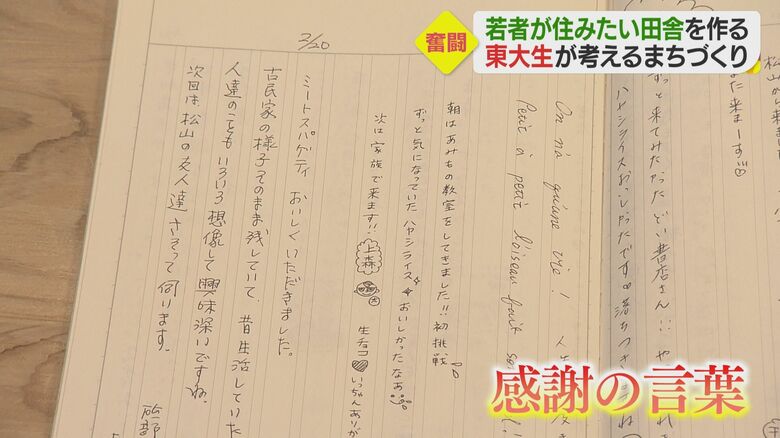 奮闘
若者が住みたい田舎を作る
東大生が考えるまちづくり
また来まーす!!
ずっと来てみたかった どい書店さん!!!
ハヤシライスおいしかったです
On n'a qu'une vie !
Petit à petit l'oiseau fait
朝はあみもの教室をしてきました!! 初挑戦
ずっと気になっていた ハヤシライス おいしかったなあ
次は家族で来ます!! 上森 生チョコ♡いっちゃんありが
2/20
ミートスパゲティ おいしくいただきました。
古民家の様子そのまま残していて、昔生活していた
人達のこともいろいろ想像して興味深いですね。
次回は松山の友人達さそって伺ります。
感謝の言葉